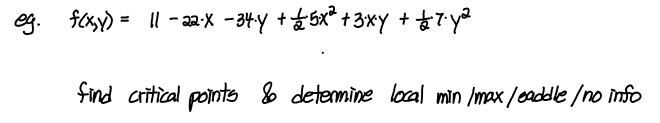 eg. f(x,y) = 11 - 22·x - 34·y + 1/2 5x² + 3·x·y + 1/2 7·y²
find critical points & determine local min /max /saddle /no info